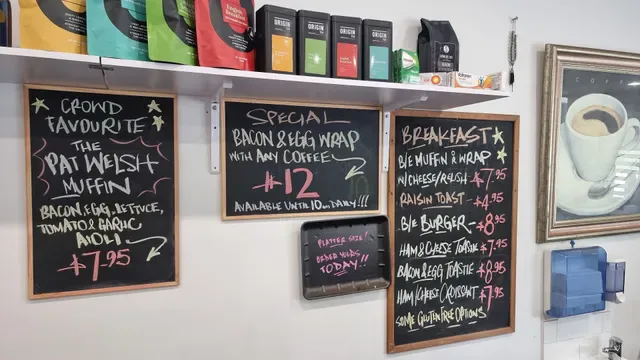 ORIGIN
ORIGIN
ORIGIN
ORIGIN
CROWD
FAVOURITE
THE
PAT WELSH
MUFFIN
BACON, EGG, LETTUCE,
TOMATO & GARLIC
AIOLI
$7.95
SPECIAL
BACON & EGG WRAP
WITH ANY COFFEE
$12
AVAILABLE UNTIL 10AM DAILY!!!
PLATTER SIZE!
ORDER YOURS
TODAY!!
BREAKFAST
B/E MUFFIN & WRAP
W/ CHEESE/RELISH $7.95
RAISIN TOAST $4.95
B/E BURGER $8.95
HAM & CHEESE TOASTIE $7.95
BACON & EGG TOASTIE $8.95
HAM/CHEESE CROISSANT $7.95
SOME GLUTEN FREE OPTIONS
COFFEE